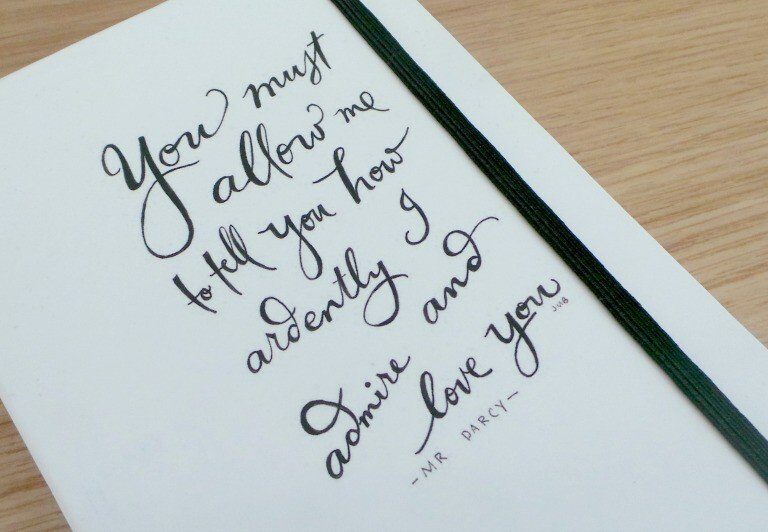 You must
allow me
to tell you how
ardently I
admire and
love you
JWB
-MR DARCY-